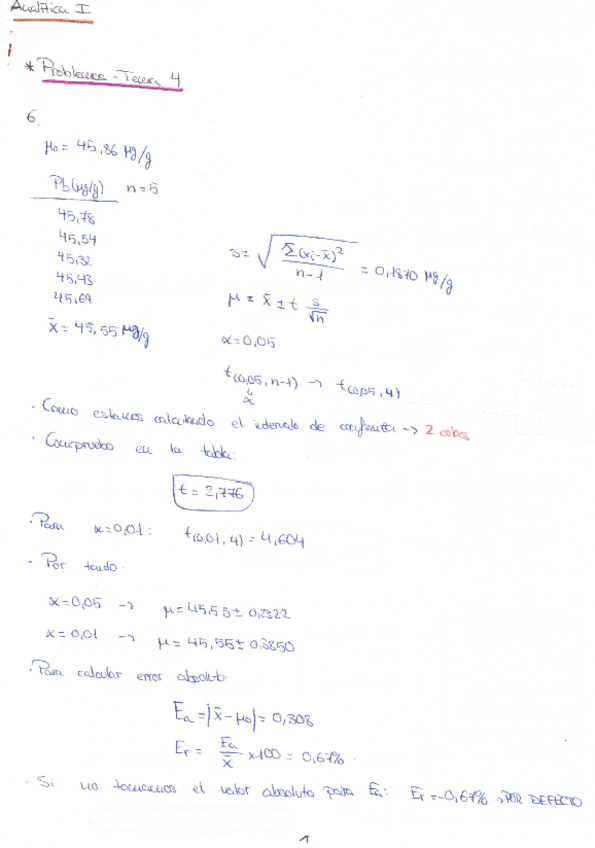 Analítica I
* Problemas - Tema 4
6.
μ₀ = 45,86 μg/g
Pb(μg/g) n=5
45,78
45,54
45,32
45,43
45,69
x̄ = 45,55 μg/g
s = √(Σ(xᵢ-x̄)²/(n-1)) = 0,1870 μg/g
μ = x̄ ± t s/√n
α = 0,05
t(0,05, n-1) → t(0,05, 4)
α
· Como estamos calculando el intervalo de confianza → 2 colas
· Compruebo en la tabla:
t = 2,776
· Para α=0,01: t(0,01, 4) = 4,604
· Por tanto:
α=0,05 → μ = 45,55 ± 0,2322
α=0,01 → μ = 45,55 ± 0,3850
· Para calcular error absoluto:
Eₐ = |x̄ - μ₀| = 0,308
Eᵣ = Eₐ/x̄ x100 = 0,67%.
· Si no tomamos el valor absoluto para Eₐ: Eᵣ = -0,67% → POR DEFECTO
1